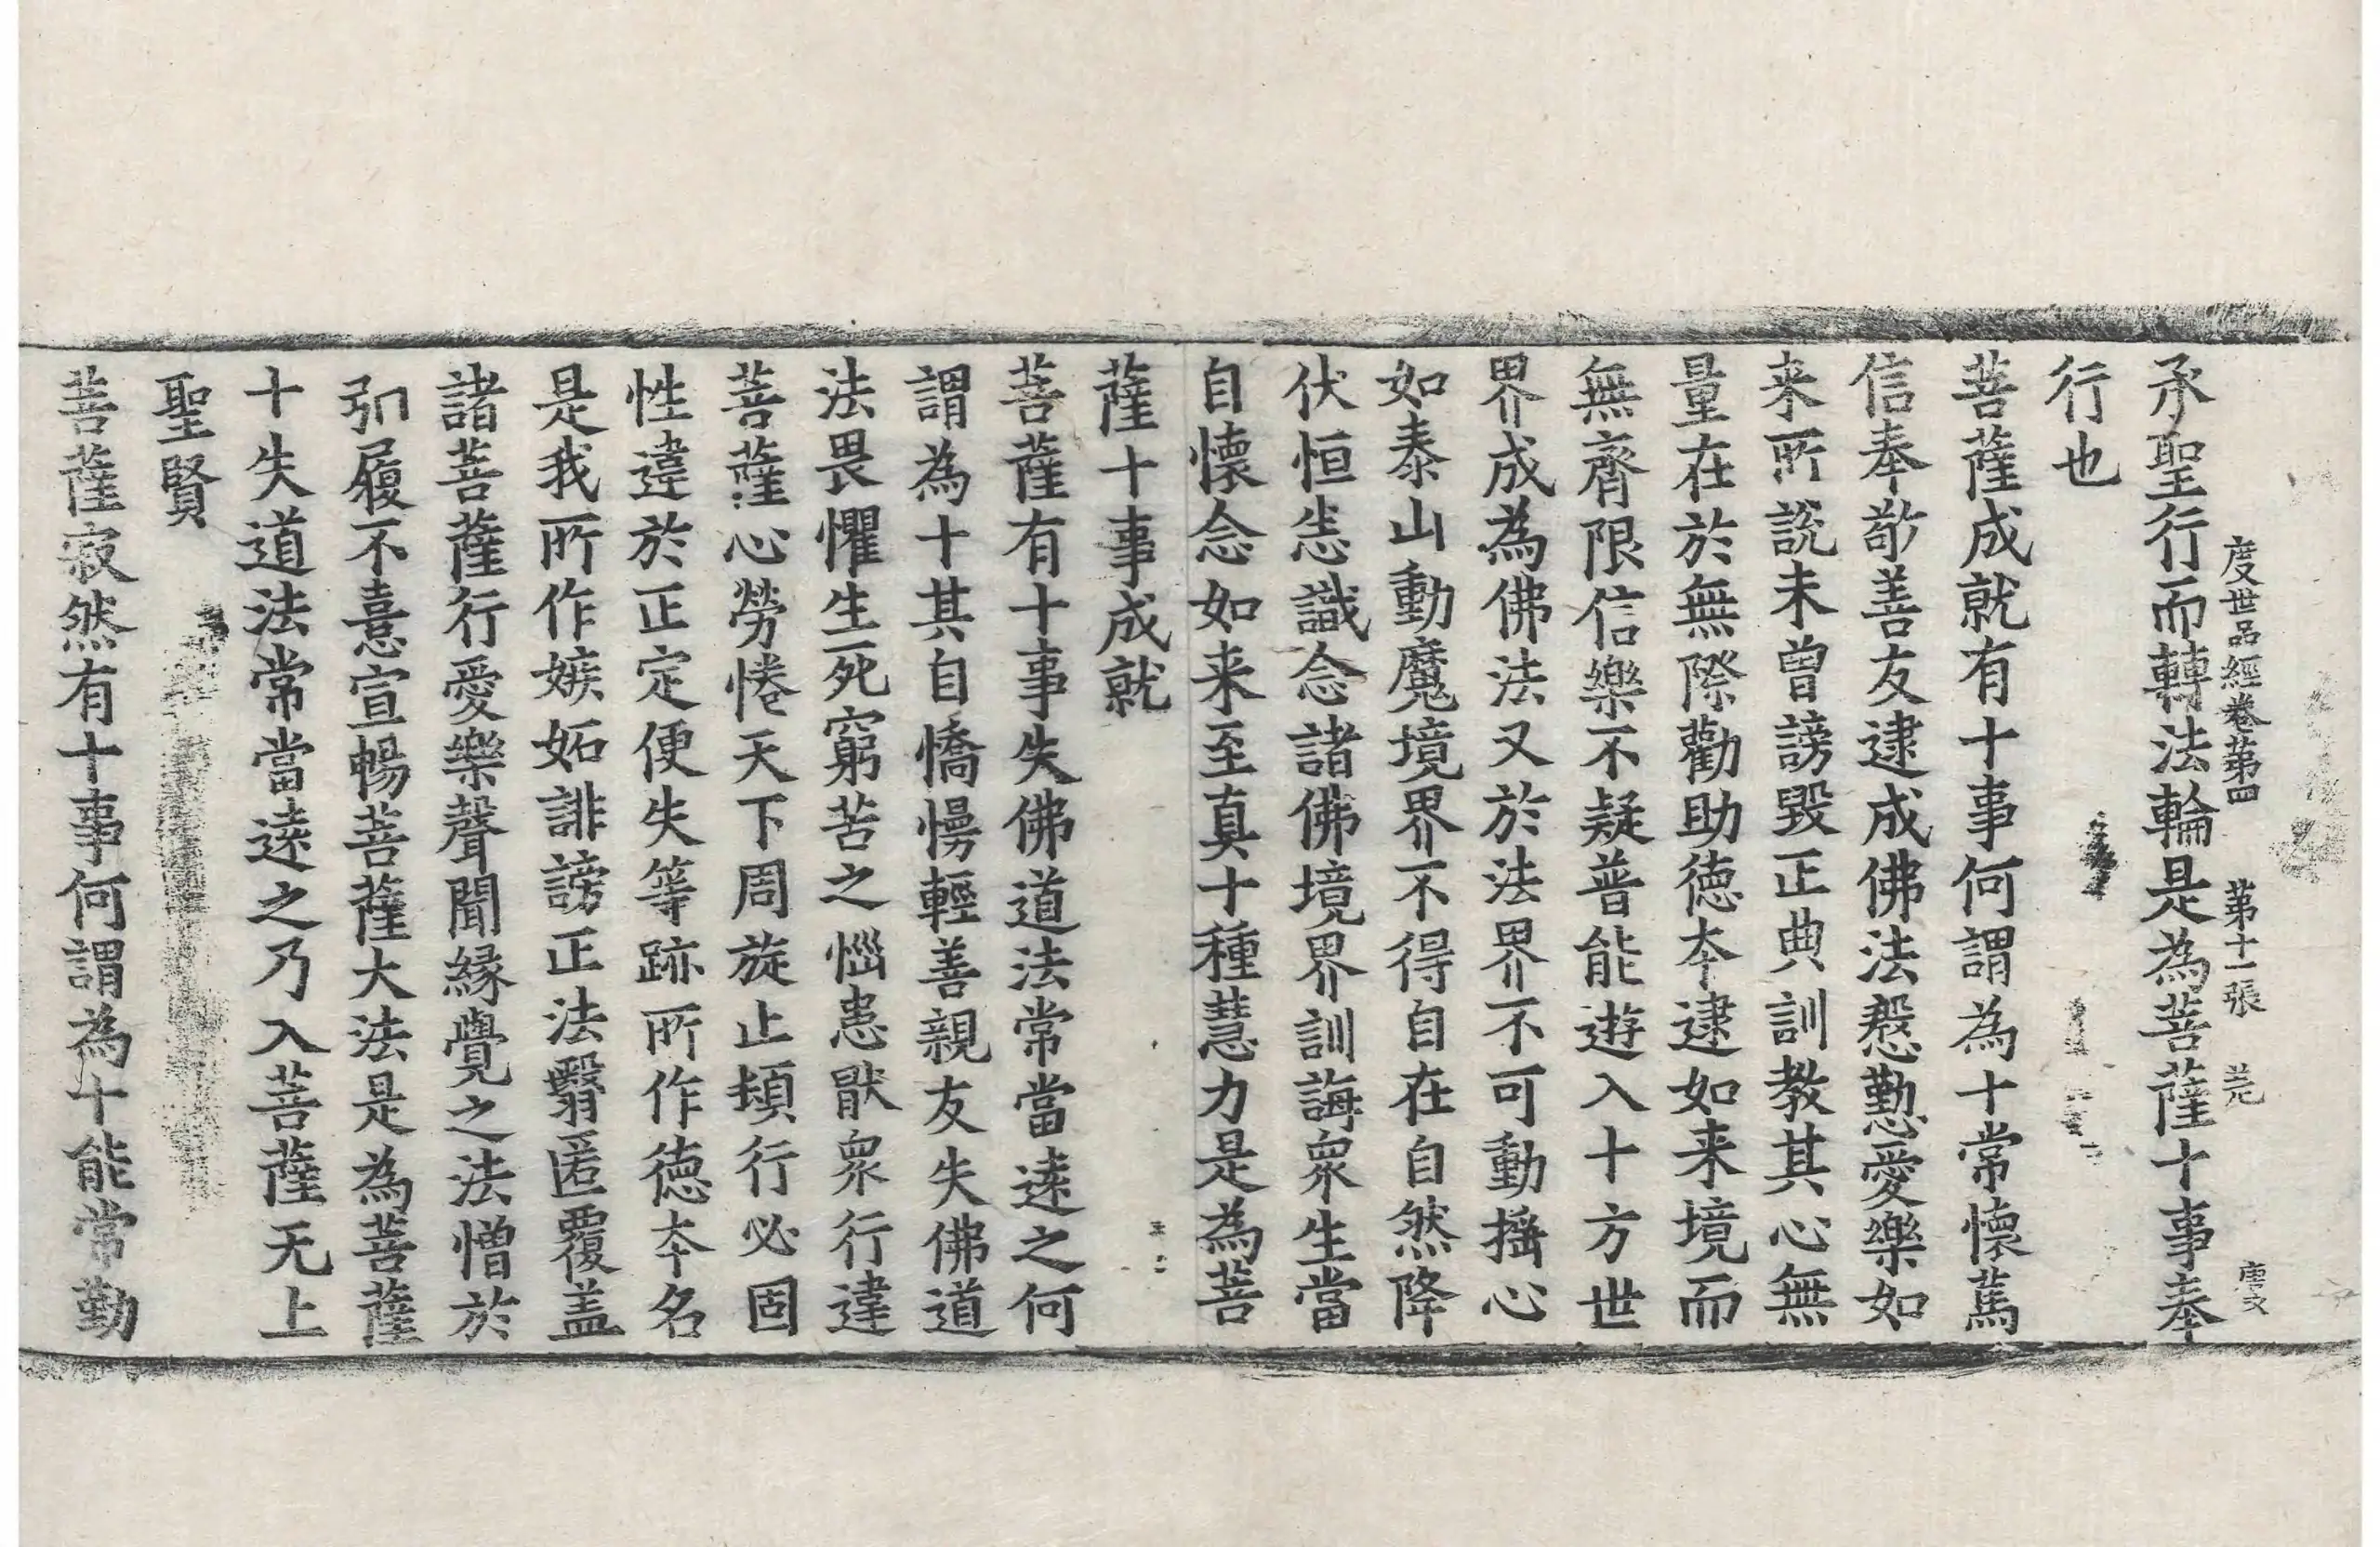 度世品経卷第四 第十一張 羌 唐文
承聖行而轉法輪是為菩薩十事奉
行也
菩薩成就有十事何謂為十常懷篤
信奉敬善友逮成佛法慇懃愛樂如
来所說未曾謗毀正典訓教其心無
量在於無際勸助德本逮如来境而
無齊限信樂不疑普能遊入十方世
界成為佛法又於法界不可動搖心
如泰山動魔境界不得自在自然降
伏恒恙識念諸佛境界訓誨衆生當
自懷念如来至真十種慧力是為菩
薩十事成就
菩薩有十事失佛道法常當遠之何
謂為十其自憍慢輕善親友失佛道
法畏懼生死窮苦之惱患猒衆行違
菩薩心勞惓天下周旋止頓行必固
性違於正定便失等跡所作德本名
是我所作嫉妬誹謗正法翳匿覆盖
諸菩薩行愛樂聲聞緣覺之法憎於
引履不憙宣暢菩薩大法是為菩薩
十失道法常當遠之乃入菩薩无上
聖賢
菩薩寂然有十事何謂為十能常勤